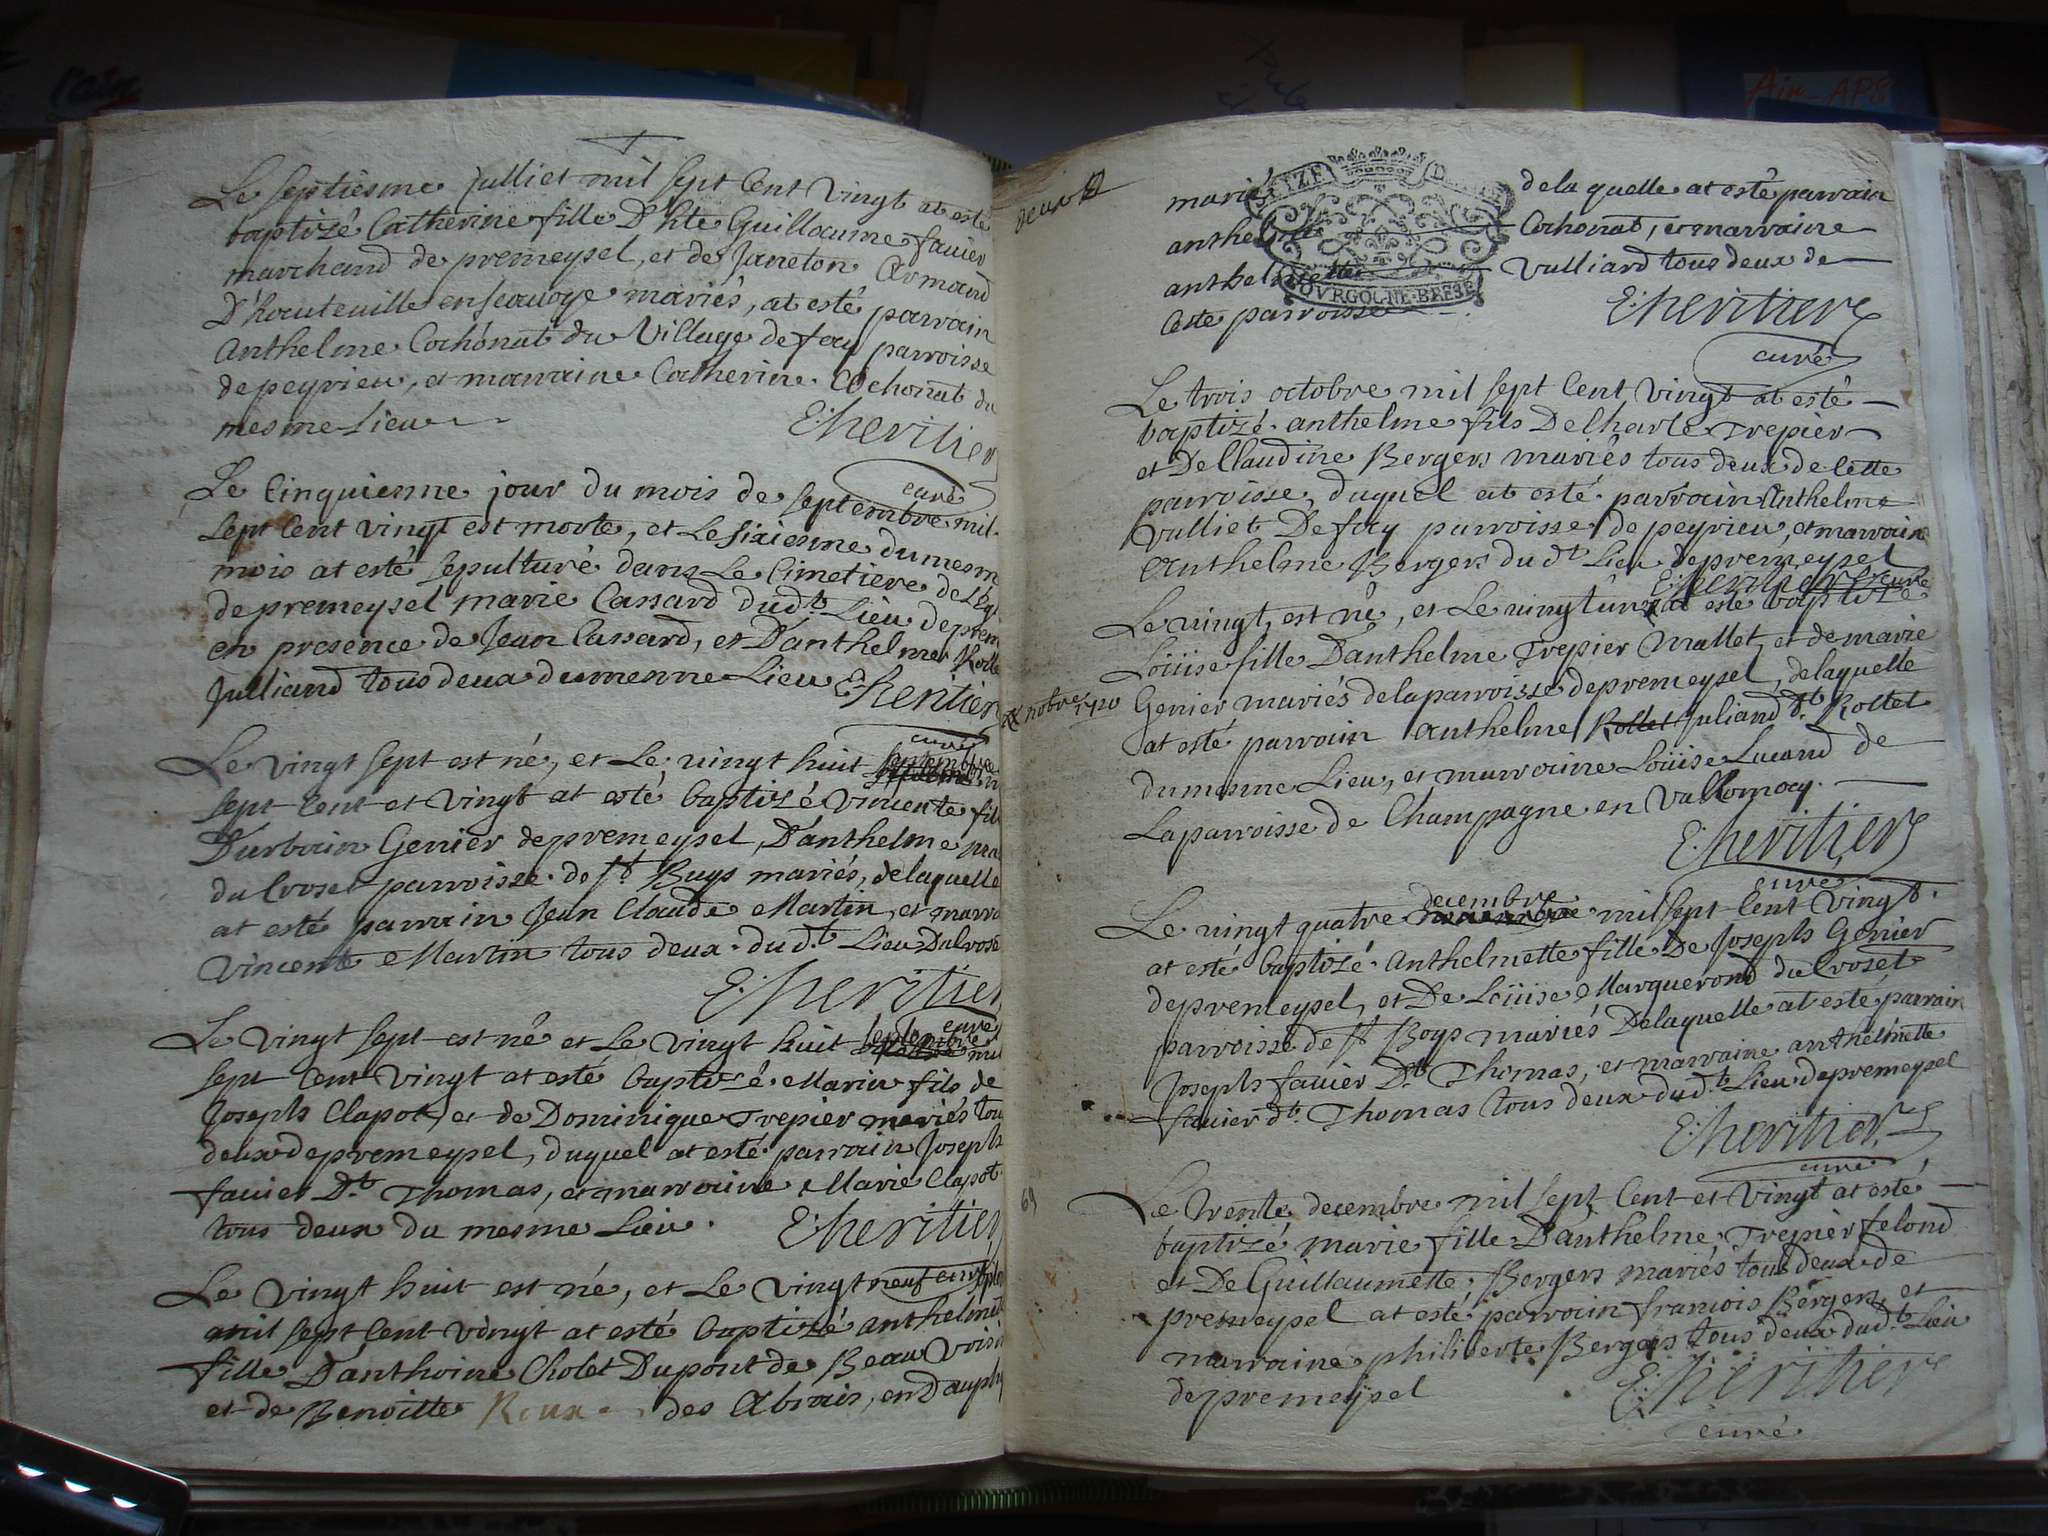 Le septiesme julliet mil sept cent vingt at esté
baptizé Catherine fille D'hte Guillaume favier
marchand de premeysel, et de Janeton Armand
D'hauteville en scavoye mariés, at esté parrain
Anthelme Cochonat du Village de fay parroisse
de peyrieu, et marraine Catherine Cochonat du
mesme Lieu
E: heritier
curé
Le Cinquienme jour du mois de septembre mil
sept Cent vingt est morte, et Le sixiesme du mesm
mois at esté sepulturé dans Le Cimetiere de L'egl
de premeysel marie Cassard dud.t Lieu de prem
en presence de Jean Cassard, et D'anthelme Rolle
Julliand tous deux du mesme Lieu E: heritier
curé
Le vingt sept est né, et Le vingt huit septembre
sept Cent et vingt at esté baptizé vincente fille
D'urbain Genier de premeysel, D'anthelme
du Croset parroisse de St. Buys mariés, de laquelle
at esté parrain Jean Claude Martin, et marra
Vincente Martin tous deux du d.t Lieu Du Crose
E: heritier
curé
Le vingt sept est né et Le vingt huit septembre mil
sept Cent vingt at esté baptizé Marin fils de
Joseph Clapot, et de Dominique Trepier mariés tou
deux de premeysel, duquel at esté parrain Joseph
favier D.t Thomas, et marraine Marie Clapot
tous deux du mesme Lieu. E: heritier
curé
Le vingt huit est né, et Le vingt neuf septe
mil sept Cent vingt at esté baptizé anthelmet
fille D'anthoine Cholet Du pont de Beau voisi
et de Benoitte Roux des Abrais, en Dauph
deux
SEIZE DEN
BOURGOGNE BRESSE
mariés de la quelle at esté parrain
anthelme Cochonat, et marraine
anthelmette Vulliard tous deux de
Ceste parroisse
E: heritier
curé
Le trois octobre mil sept Cent vingt at esté
baptizé anthelme fils De Charle Trepier
et De Claudine Bergers mariés tous deux de Cette
parroisse, duquel at esté parrain Anthelme
Vulliet De fay parroisse de peyrieu, et marrain
Anthelme Bergers du d.t Lieu de premeysel
E: heritier curé
Le vingt est né, et Le vingt un at esté baptizé
Loüise fille D'anthelme Trepier Mallet, et de marie
xx nobre 1720
Genier mariés de la parroisse de premeysel, de laquelle
at esté parrain Anthelme Rollet juliand d.t Rollet
du mesme Lieu, et marraine Loüise Lucand de
La parroisse de Champagne en Vallomay.
E: heritier
curé
Le vingt quatre decembre mil sept Cent vingt.
at esté baptizé Anthelmette fille De Joseph Genier
de premeysel, et De Loüise Marquerond du Croset
parroisse de St Boys mariés De laquelle at esté parrain
Joseph favier D.t Thomas, et marraine anthelmette
favier d.t Thomas tous deux du d.t Lieu de premeysel
E: heritier
curé
69
Le trente decembre mil sept Cent et vingt at esté
baptizé marie fille D'anthelme Trepier felond
et De Guillaumette Bergers mariés tous deux de
premeysel at esté parrain francois Bergers, et
marraine philiberte Bergers tous deux dud.t Lieu
de premeysel
E: heritier
curé
Ain APS